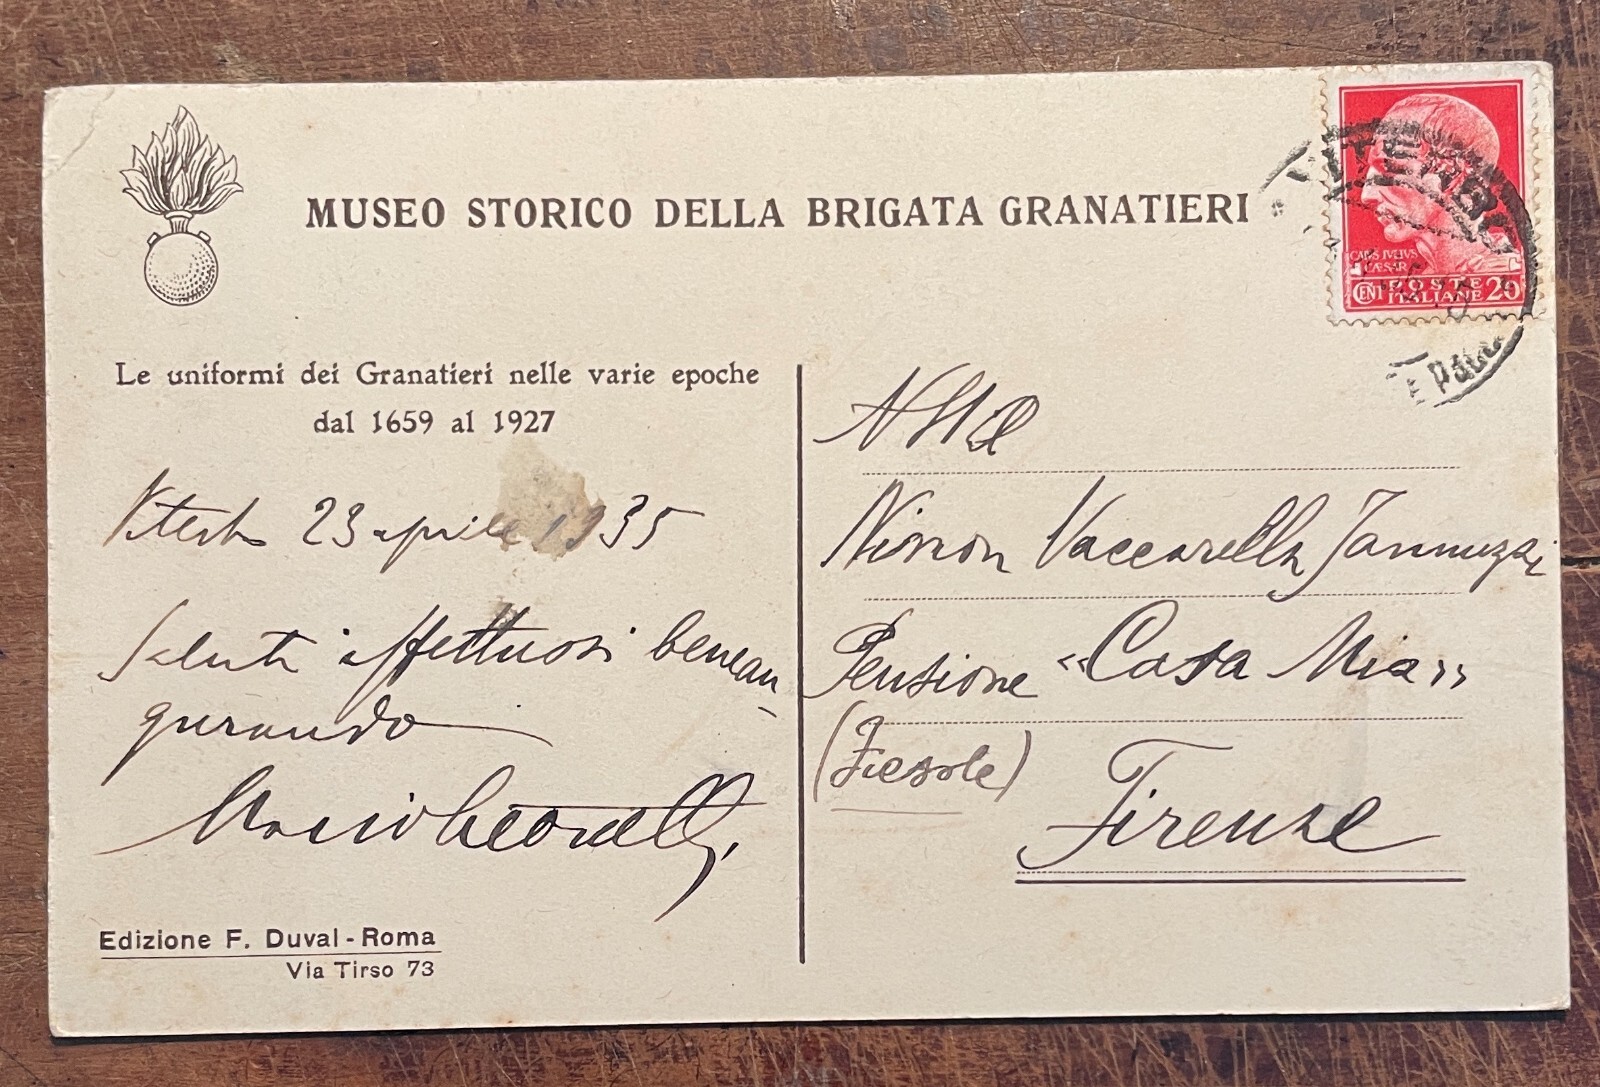 MUSEO STORICO DELLA BRIGATA GRANATIERI
VITERBO
CAIVS IVLIVS
CÆSAR
CENT POSTE ITALIANE 20
Le uniformi dei Granatieri nelle varie epoche
dal 1659 al 1927
Viterbo 23 aprile 1935
Saluti affettuosi benean-
gurando
Edizione F. Duval - Roma
Via Tirso 73
Ninon Vaccarella Jannuzzi
Pensione "Casa Mia"
(Fiesole)
Firenze